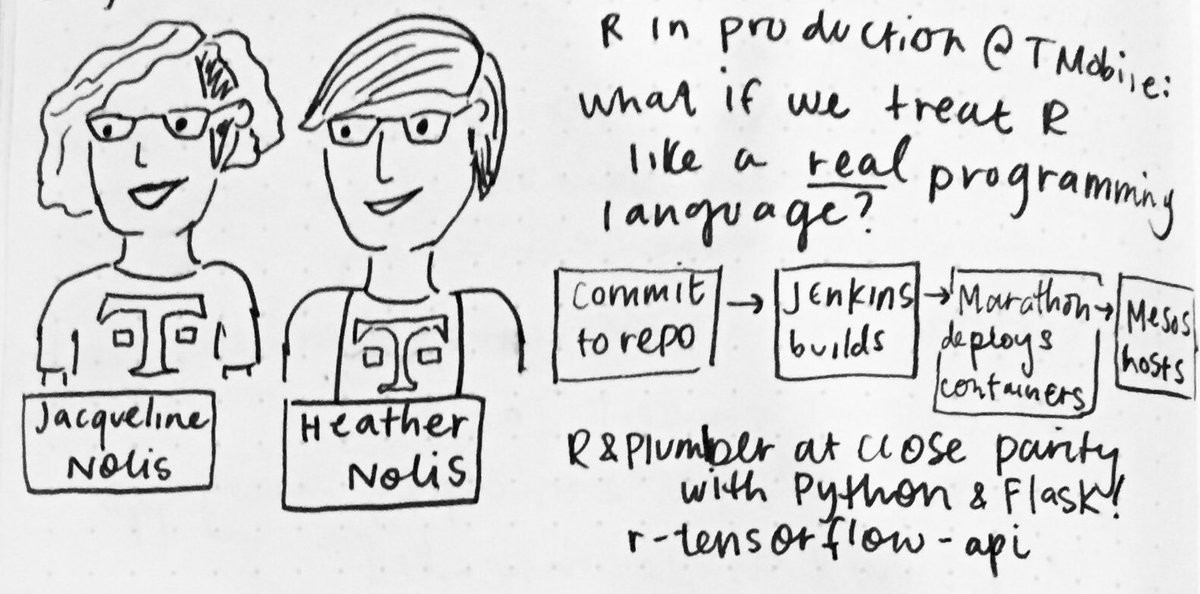 Jacqueline
Nolis
Heather
Nolis
R in production @TMobile:
what if we treat R
like a real programming
language?
Commit
to repo
Jenkins
builds
Marathon
deploys
containers
Mesos
hosts
R & Plumber at close parity
with Python & Flask!
r-tensorflow-api